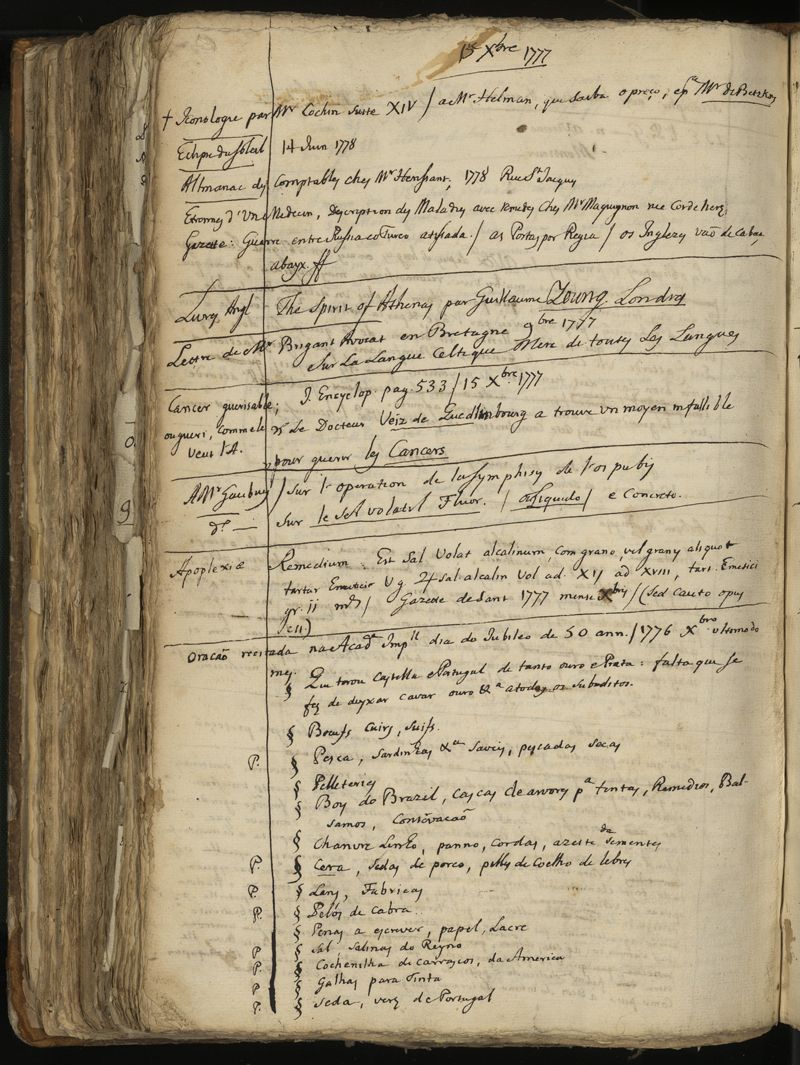 15 Xbre 1777
† Iconologie par Mr Cochin suite XIV / a Mr Helman, que saiba o preço, Mr de Betzkoy
Eclipse du Soleil 14 Juin 1778
Altmanac des Comptables chez Mr 1778 Rue St Jacques
Etrennes d'Un Medecin, Description des Maladies avec remedes chez Mr Maquignon rue Cordeliers
Gazette: Guerre entre Russia e o Turco / as Portas por / os Inglezes vaõ de cabeça
abayx. ff
Livres Angl The Spirit of Athenas par Guillaume Young. Londres
Lettre de Mr Brigant Avocat en Bretagne 9bre 1777
sur La Langue Celtique Mere de toutes Les Langues
J. Encyclop. pag. 533 / 15 Xbre 1777
Cancer guerisable;
ou gueri, comme le Le Docteur Veiz de Quedlinbourg a trouve un moyen infallible
veut l'A. pour guerir les Cancers
A Mr Gaubius / sur l'operation de la symphise de l'os pubis
do — sur le sel volatil Fluor. / a Liquido / e Concreto.
Apoplexiæ Remedium: Est Sal Volat alcalinum, com grano, vel granys aliquot
tartar Emetici Vg ♃ sal alcalin vol ad XIJ ad XVIII, tart. Emetici
gr. ij / Gazette de Sant 1777 mense Xbris / (sed cauto opus
est.)
Oracão recitada na Acada Impll dia do Jubileo de 50 ann. / 1776 Xbro ultimo do
mez.
§ Que tirou Castella e Portugal de tanto ouro e Prata: falta que se
fez de deyxar cavar ouro &a a todos os subditos.
§ Boeufs cuirs, suifs.
P. § Pesca, sardinhas &a Saveis, pescadas secas
§ Pelleterias
§ Boys do Brazil, cascas de arvores pa tintas, Remedios, Bal-
samos, Conservacaõ
§ Chanvre Linho, panno, cordas, azeite da sementes
P. § Cera, sedas de porco, pelles de Coelho de lebres
P. § Lans, Fabricas
P. § Pelós de cabra.
§ Penas a escrever, papel, Lacre
P § Sal, salinas do Reyno
P. § Cochenilha de carrascos, da America
P § Galhas para Tinta
P. § Seda, vers de Portugal